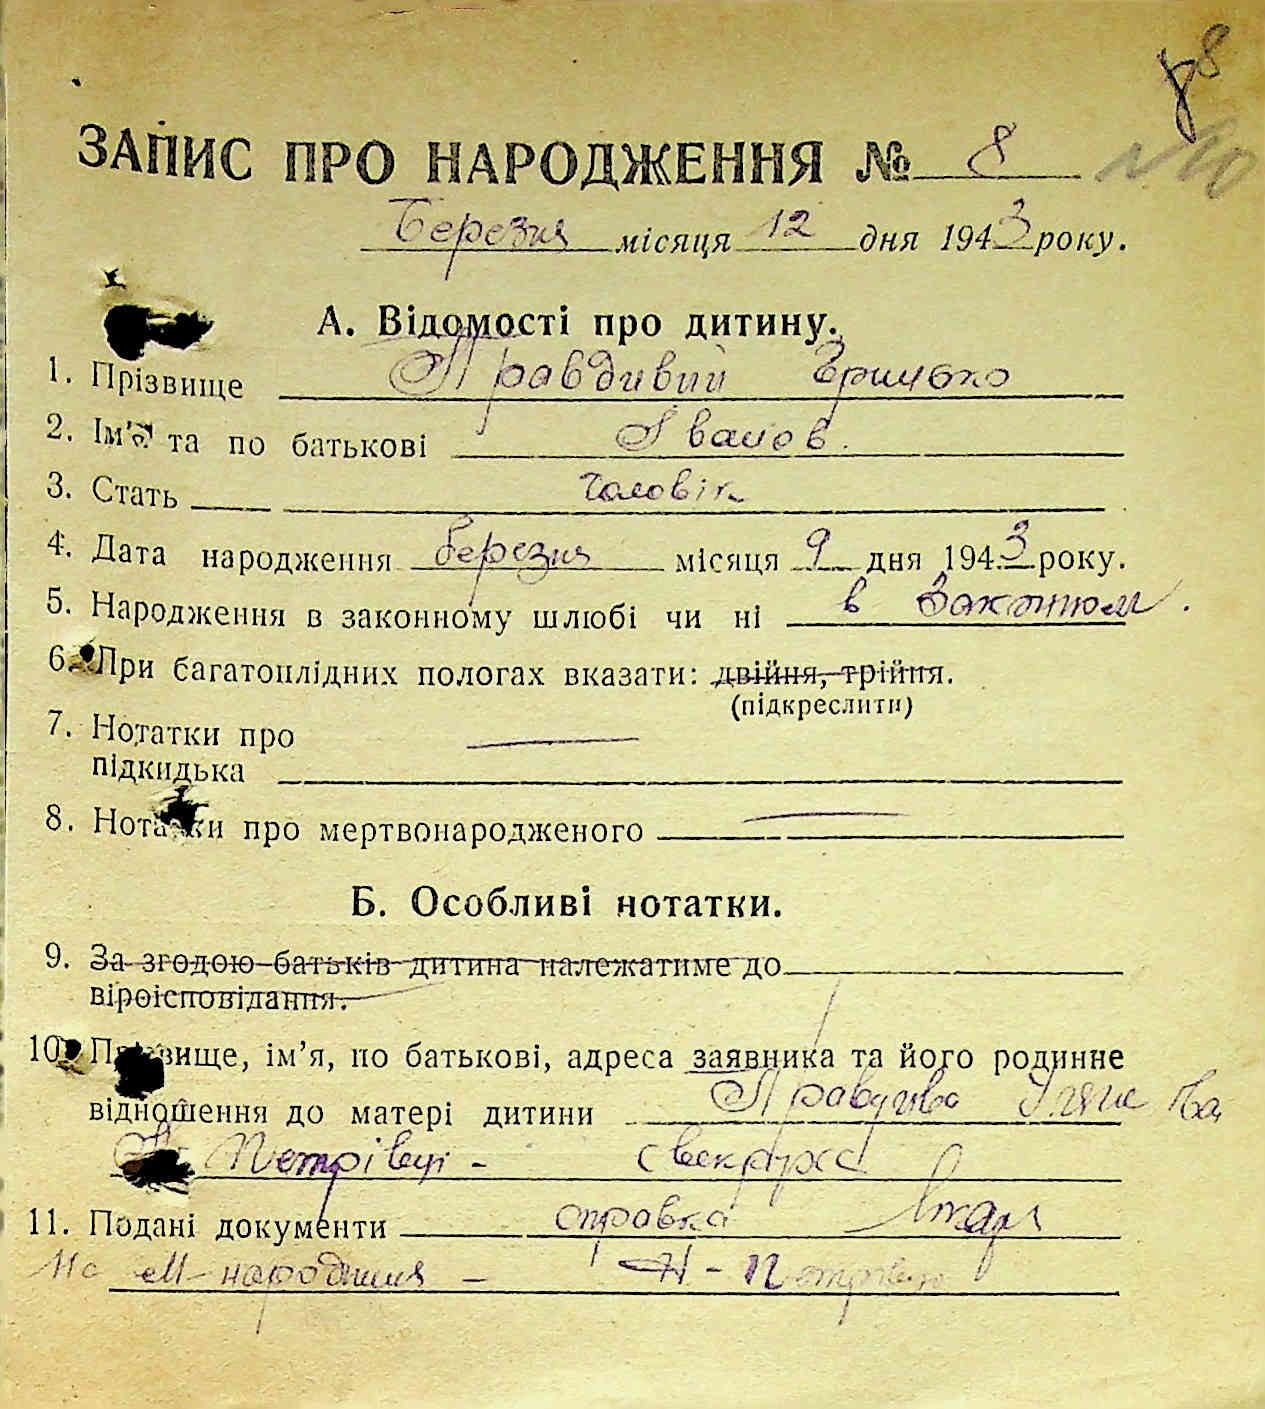 8
ЗАПИС ПРО НАРОДЖЕННЯ № 8 N 10
Березня місяця 12 дня 1943 року.
А. Відомості про дитину.
1. Прізвище Правдивий Гринько
2. Ім'я та по батькові Іванов.
3. Стать чоловік
4. Дата народження березня місяця 9 дня 1943 року.
5. Народження в законному шлюбі чи ні в законном.
6. При багатоплідних пологах вказати: двійня, трійня.
(підкреслити)
7. Нотатки про
підкидька
8. Нотатки про мертвонародженого
Б. Особливі нотатки.
9. За згодою батьків дитина належатиме до
віроісповідання.
10. Прізвище, ім'я, по батькові, адреса заявника та його родинне
відношення до матері дитини Правдива Уляна
Петрівці - свекруха
11. Подані документи справка
народження - Н - Петрівці